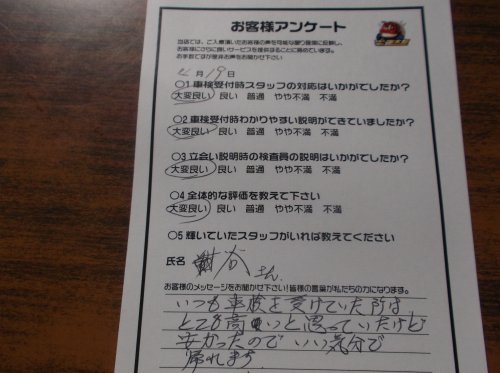 お客様アンケート
当店では、ご入庫頂いたお客様の声を可能な限り店運に反映し、
お客様にさらに良いサービスを提供することに努めています。
お手数ですが是非お声をお聞かせ下さい
月19日
○1 車検受付時スタッフの対応はいかがでしたか?
大変良い 良い 普通 やや不満 不満
○2 車検受付時わかりやすい説明ができていましたか?
大変良い 良い 普通 やや不満 不満
○3 立会い説明時の検査員の説明はいかがでしたか?
大変良い 良い 普通 やや不満 不満
○4 全体的な評価を教えて下さい
大変良い 良い 普通 やや不満 不満
○5 輝いていたスタッフがいれば教えてください
氏名 谷さん
お客様のメッセージをお聞かせ下さい!皆様の言葉が私たちの力になります。
いつも車検を受けていた所は、
とても高いと思っていたけど
安かったのでいい気分で
帰れます